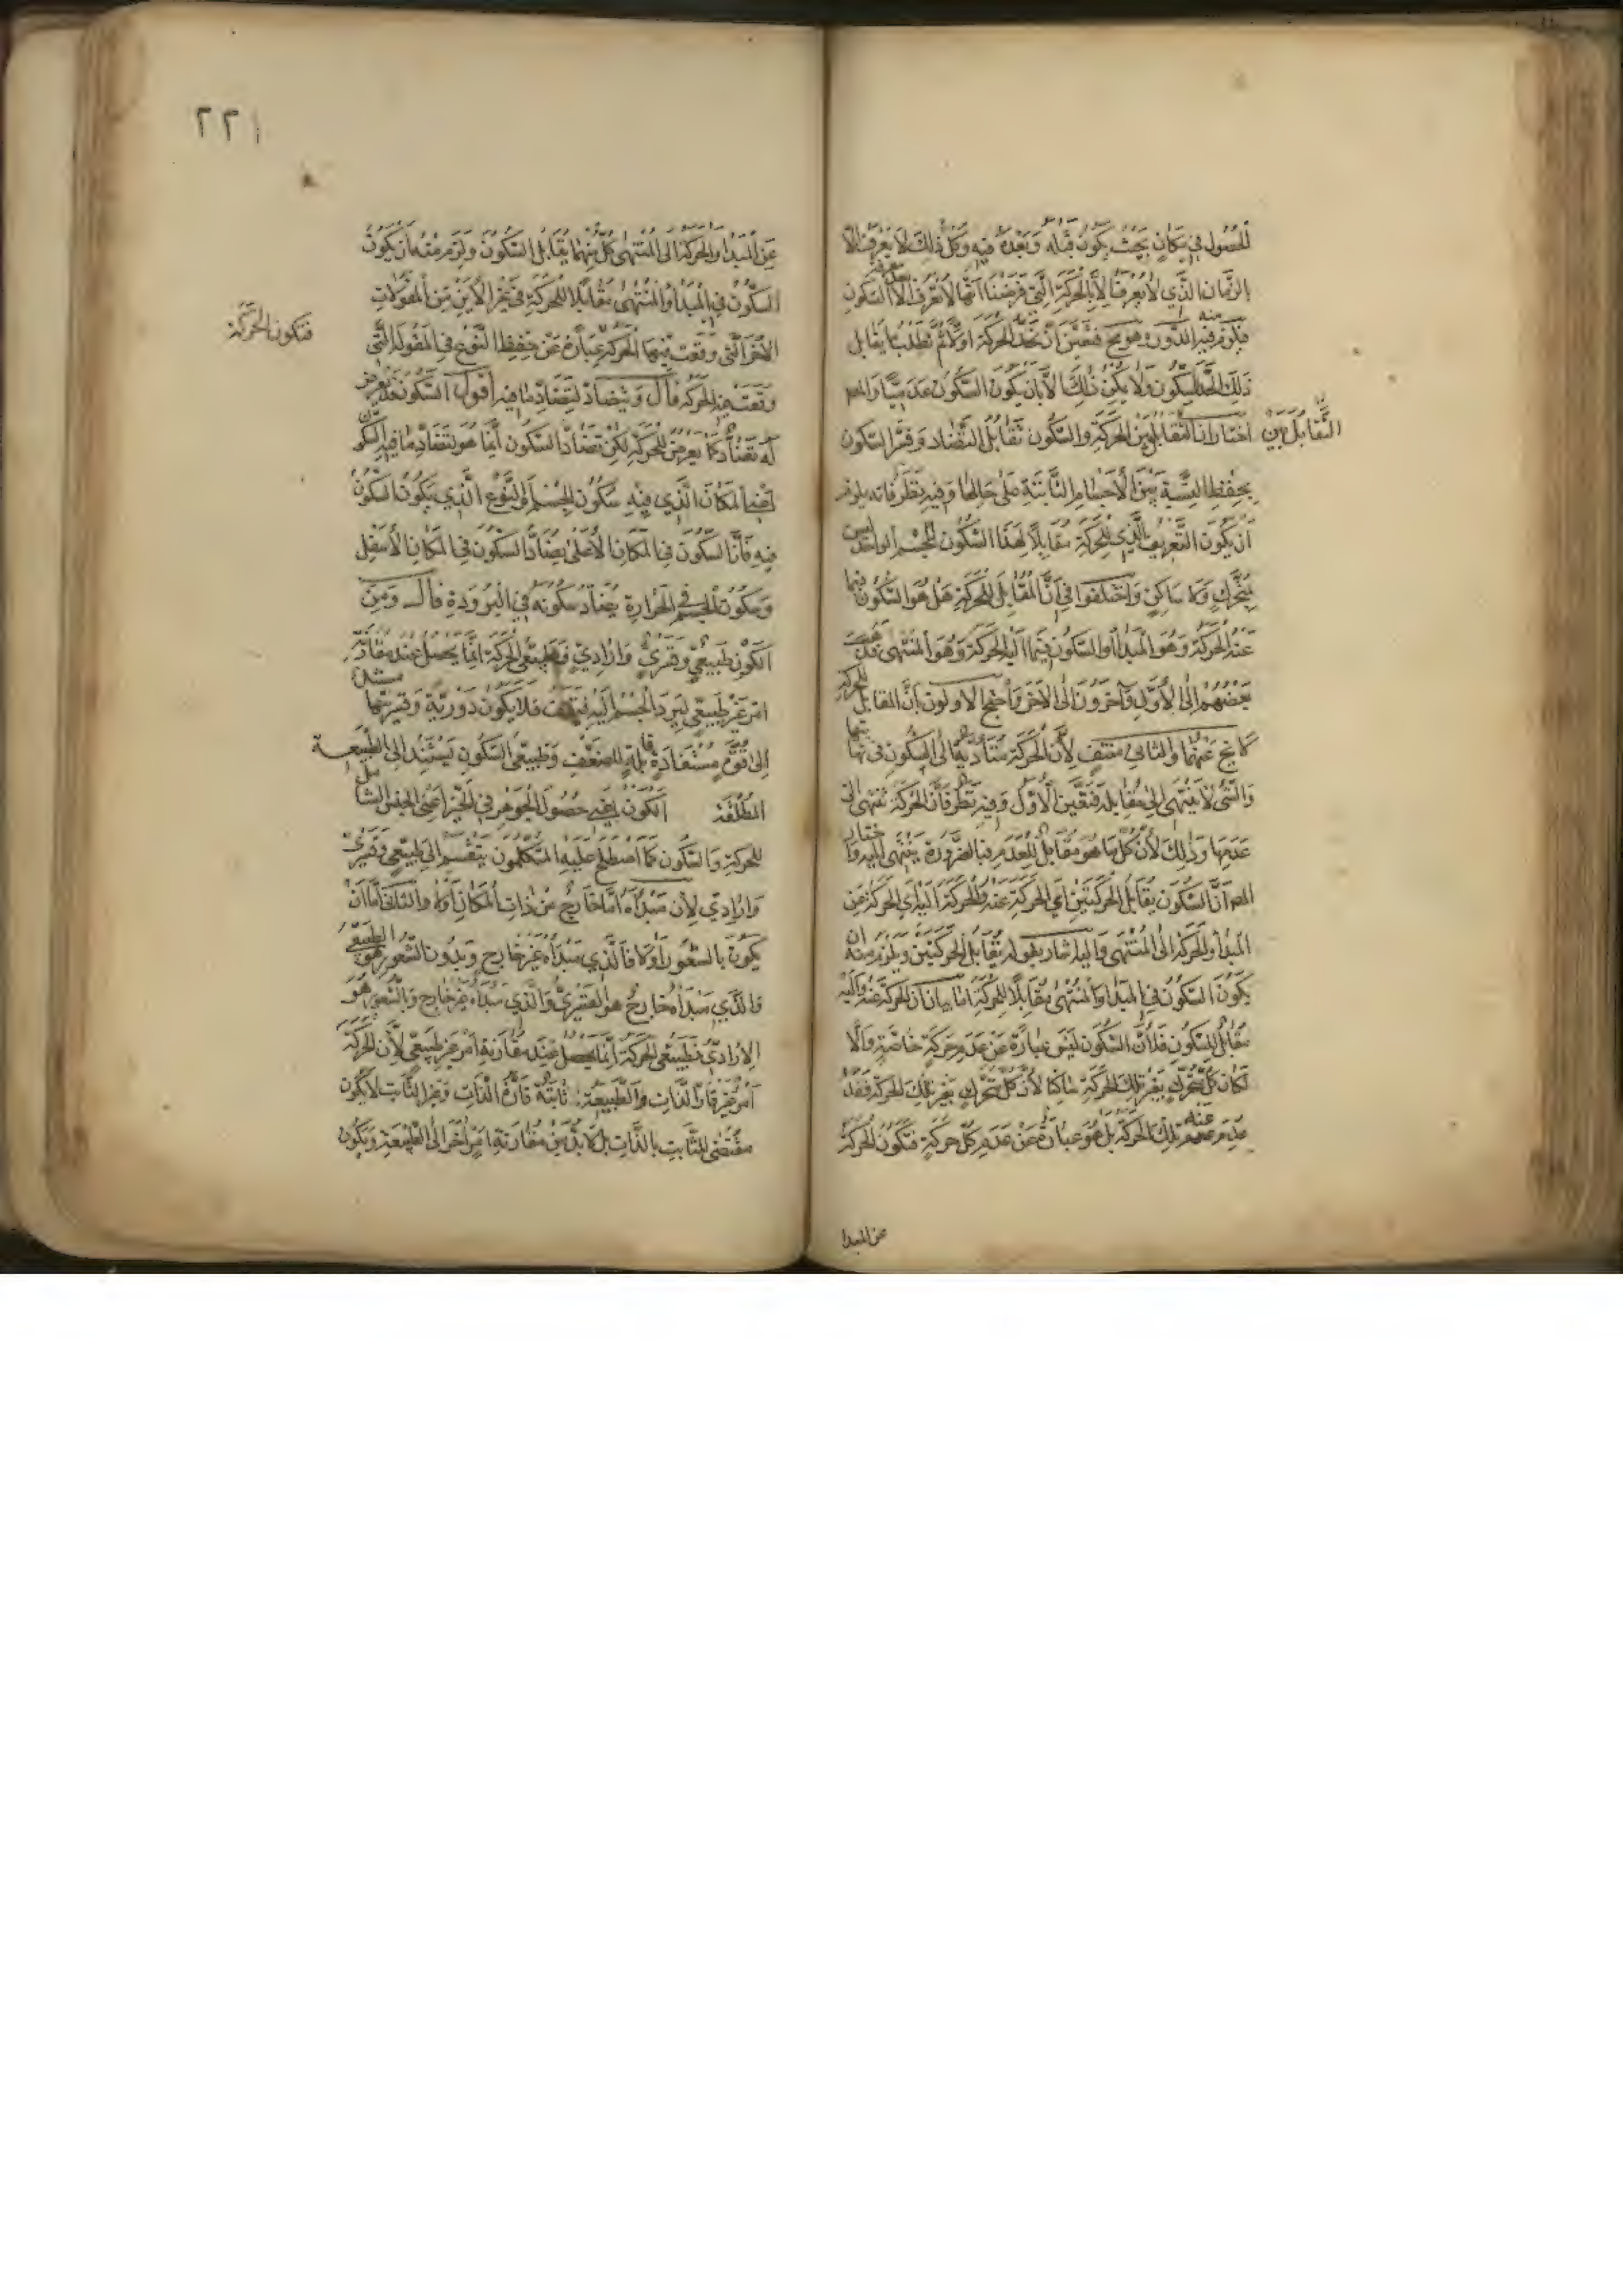 الحصول في مكان بحيث يكون قبله وبعده فيه وكل ذلك لا يعرف الا
بالزمان الذي لا يعرف الا بالحركة التي فرضنا انها لا تعرف الا بعد معرفة السكون
فيلزم منه الدور وهو مح فتعين ان نحد الحركة اولا ثم نطلب ما يقابل
ذلك الحد للسكون ولا يمكن ذلك الا بان يكون السكون عدميا والمص
اختار ان التقابل بين الحركة والسكون تقابل التضاد وفسر السكون
التقابل بين
بحفظ النسبة بين الاجسام الثابتة على حالها وفيه نظر فانه يلزم
ان يكون التعريف الذي للحركة مقابلا لهذا السكون للجسم الواحد ليس
بمتحرك ولا ساكن واختلفوا في ان المقابل للحركة هل هو السكون فيما
عنه الحركة وهو المبدا او السكون فيما اليه الحركة وهو المنتهى فذهب
بعضهم الى الاول وآخرون الى الآخر واحتج الاولون بان المقابل للحركة
لا يخ عنهما والثاني منتف لان الحركة متادية الى السكون في نهايتها
والشئ لا ينتهي الى مقابله فتعين الاول وفيه نظر فان الحركة تنتهي الى
عدمها وذلك لان كل ما هو مقابل للعدم فبالضرورة ينتهي اليه واختار
المص ان السكون يقابل الحركتين اي الحركة عنه والحركة اليه اي الحركة عن
المبدا والحركة الى المنتهى واليه اشار بقوله يقابل الحركتين ويلزم منه ان
يكون السكون في المبدا والمنتهى مقابلا للحركة اما بيان ان الحركة عنه واليه
مقابل للسكون فلان السكون ليس عبارة عن عدم حركة خاصة والا
لكان كل متحرك بغير تلك الحركة ساكنا لان كل متحرك بغير تلك الحركة فقد
عدم عنه تلك الحركة بل هو عبارة عن عدم كل حركة فتكون الحركة
عن المبدا
٢٢١
عن المبدا والحركة الى المنتهى كل منهما يقابل السكون ويلزم منه ان يكون
السكون في المبدا والمنتهى مقابلا للحركة في غير الاين من المقولات
فتكون الحركة
الاخر التي وقعت فيها الحركة عبارة عن حفظ النوع في المقولة التي
وقعت فيها الحركة قال ويتضاد لتضاد ما فيه اقول السكون قد يعرض
له تضاد كما يعرض للحركة لكن تضاد السكون انما هو بتضاد ما فيه السكون
اعني المكان الذي فيه سكون الجسم او النوع الذي يكون السكون
فيه فان السكون في المكان الاعلى يضاد السكون في المكان الاسفل
وسكون الجسم في الحرارة يضاد سكونه في البرودة قال ومن
الكون طبيعي وقسري وارادي فطبيعي الحركة انما يحصل عند مقارنة
امر غير طبيعي ليرد الجسم اليه فيقف فلا يكون دورية وقسريتها
الى قوة مستفادة قابلة للضعف وطبيعي السكون يستند الى الطبيعة
المطلقة الكون اعني حصول الجوهر في الحيز اعني الجنس الشامل
للحركة والسكون كما اصطلح عليه المتكلمون ينقسم الى طبيعي وقسري
وارادي لان مبداه اما خارج عن ذات المكان او لا والثاني اما ان
يكون بالشعور او لا فالذي مبداه غير خارج وبدون الشعور هو الطبيعي
والذي مبداه خارج هو القسري والذي مبداه غير خارج وبالشعور هو
الارادي فطبيعي الحركة انما يحصل عند مقارنة امر غير طبيعي لان الحركة
امر غير قار الذات والطبيعة ثابتة قارة الذات وغير الثابت لا يكون
مقتضى للثابت بالذات بل لا بد من مقارنة امر اخر الى الطبيعة ويكون